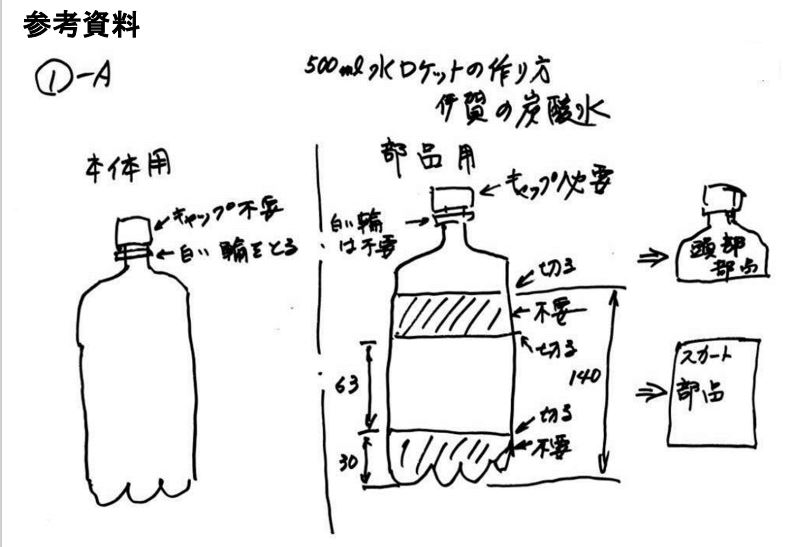 参考資料
①-A
500ml水ロケットの作り方
伊賀の炭酸水
本体用
キャップ不要
白い輪をとる
部品用
キャップ必要
白い輪
は不要
切る
不要
切る
63
140
切る
不要
30
頭部
部品
スカート
部品